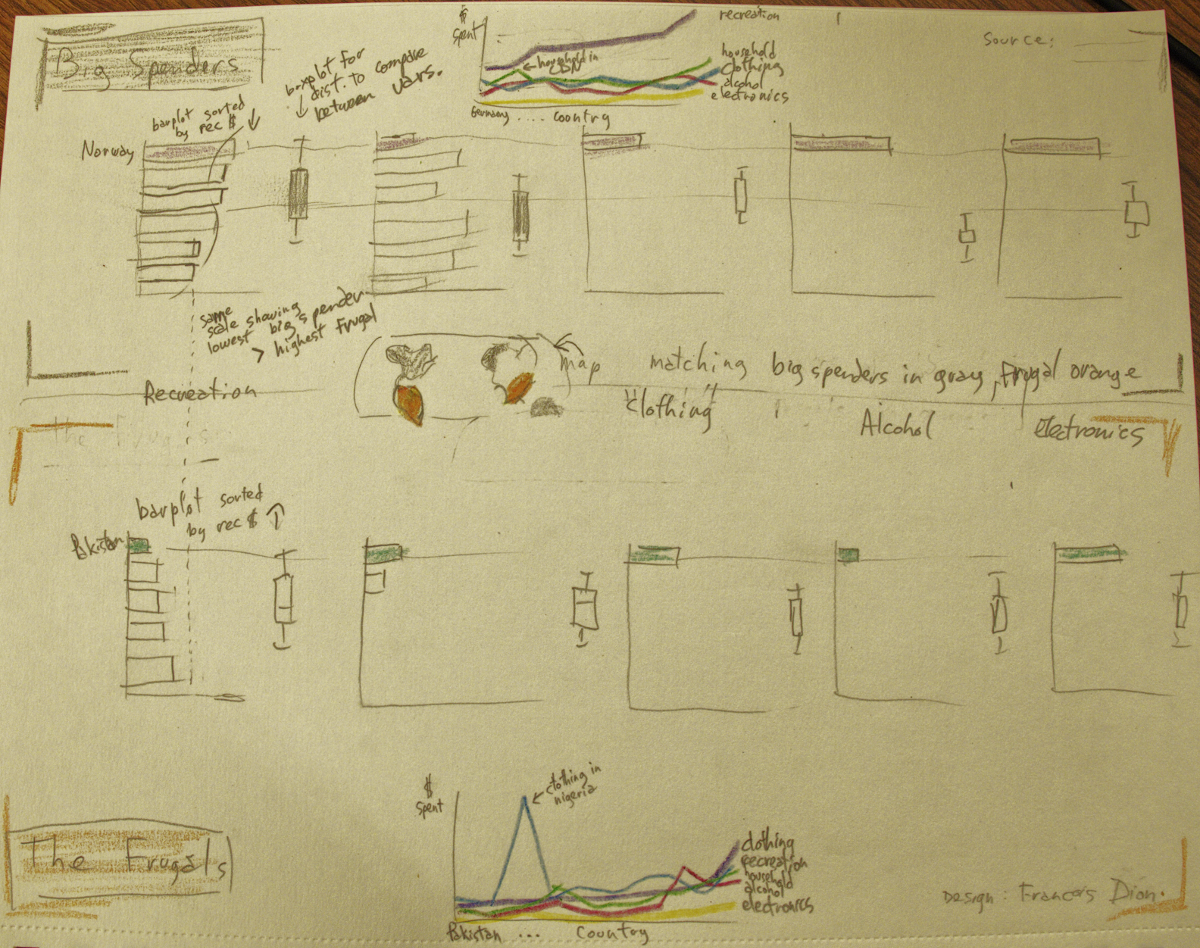 Big Spenders
$
spent
recreation
household in
CDN
household
clothing
alcohol
electronics
Germany .... Country
Source:
boxplot for
dist. to compare
between vars.
barplot sorted
by rec $
Norway
same
scale showing
lowest big spender
> highest frugal
map matching big spenders in gray, frugal orange
Recreation
"clothing"
Alcohol
electronics
The Frugals
barplot sorted
by rec $
Pakistan
$
spent
clothing in
nigeria
clothing
recreation
household
alcohol
electronics
Pakistan ... Country
The Frugals
Design: Francois Dion.